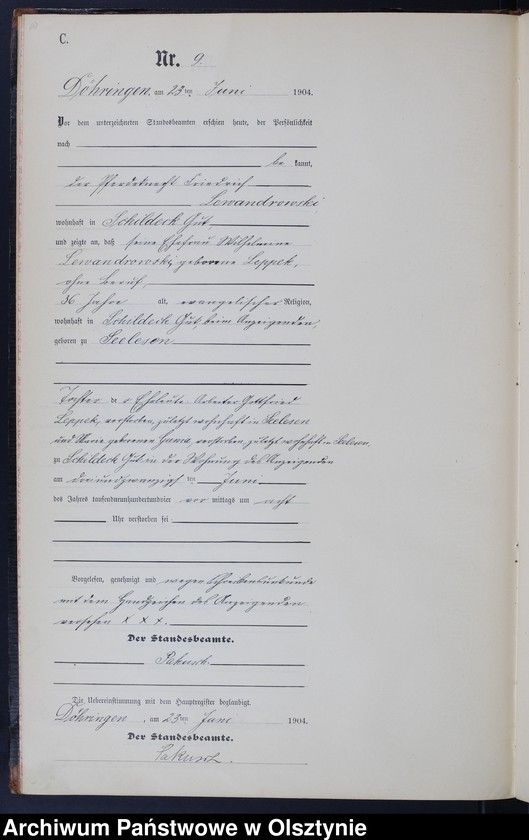 C.
Nr. 9.
Döhringen, am 23ten Juni 1904.
Vor dem unterzeichneten Standesbeamten erschien heute, der Persönlichkeit
nach
be kannt,
der Pferdeknecht Friedrich
Lewandrowski
wohnhaft in Schildeck Gut,
und zeigte an, daß seine Ehefrau Wilhelmine
Lewandrowski, geborene Leppek,
ohne Beruf,
36 Jahre alt, evangelischer Religion,
wohnhaft in Schildeck Gut, beim Anzeigenden,
geboren zu Seelesen
Tochter der Eheleute Arbeiter Gottfried
Leppek, verstorben, zuletzt wohnhaft in Seelesen
und Marie geborenen, verstorben, zuletzt wohnhaft in Seelesen,
zu Schildeck Gut in der Wohnung des Anzeigenden
am dreiundzwanzigsten Juni
des Jahres tausendneunhundertundvier vor mittags um acht
Uhr verstorben sei
Vorgelesen, genehmigt und wegen Schreibensunkunde
mit dem Handzeichen des Anzeigenden
versehen x x x.
Der Standesbeamte.
Die Uebereinstimmung mit dem Hauptregister beglaubigt.
Döhringen, am 23ten Juni 1904.
Der Standesbeamte.
Archiwum Państwowe w Olsztynie